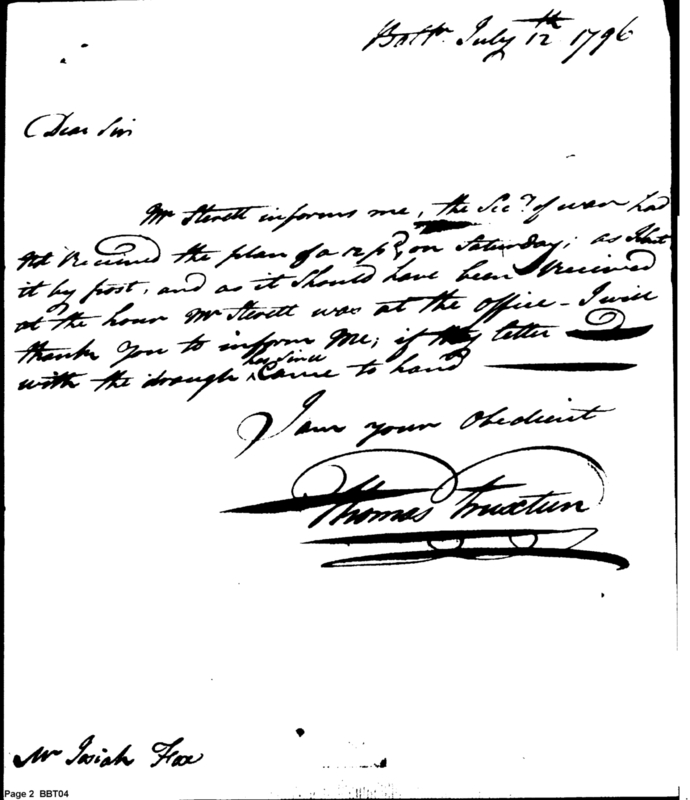 Balt<sup>r</sup>. July 12<sup>th</sup> 1796
Dear Sir
Mr Sterett informs me, the Sec<sup>y</sup> of war had
not Received the plan of a 12 p<sup>r</sup>, on Saturday; as I sent
it by post, and as it Should have been Received
at the hour Mr Sterett was at the office - I will
thank You to inform Me; if my letter
with the draugh has Since Came to hand
I am your Obedient
Thomas Truxtun
Mr Josiah Fox
Page 2 BBT04